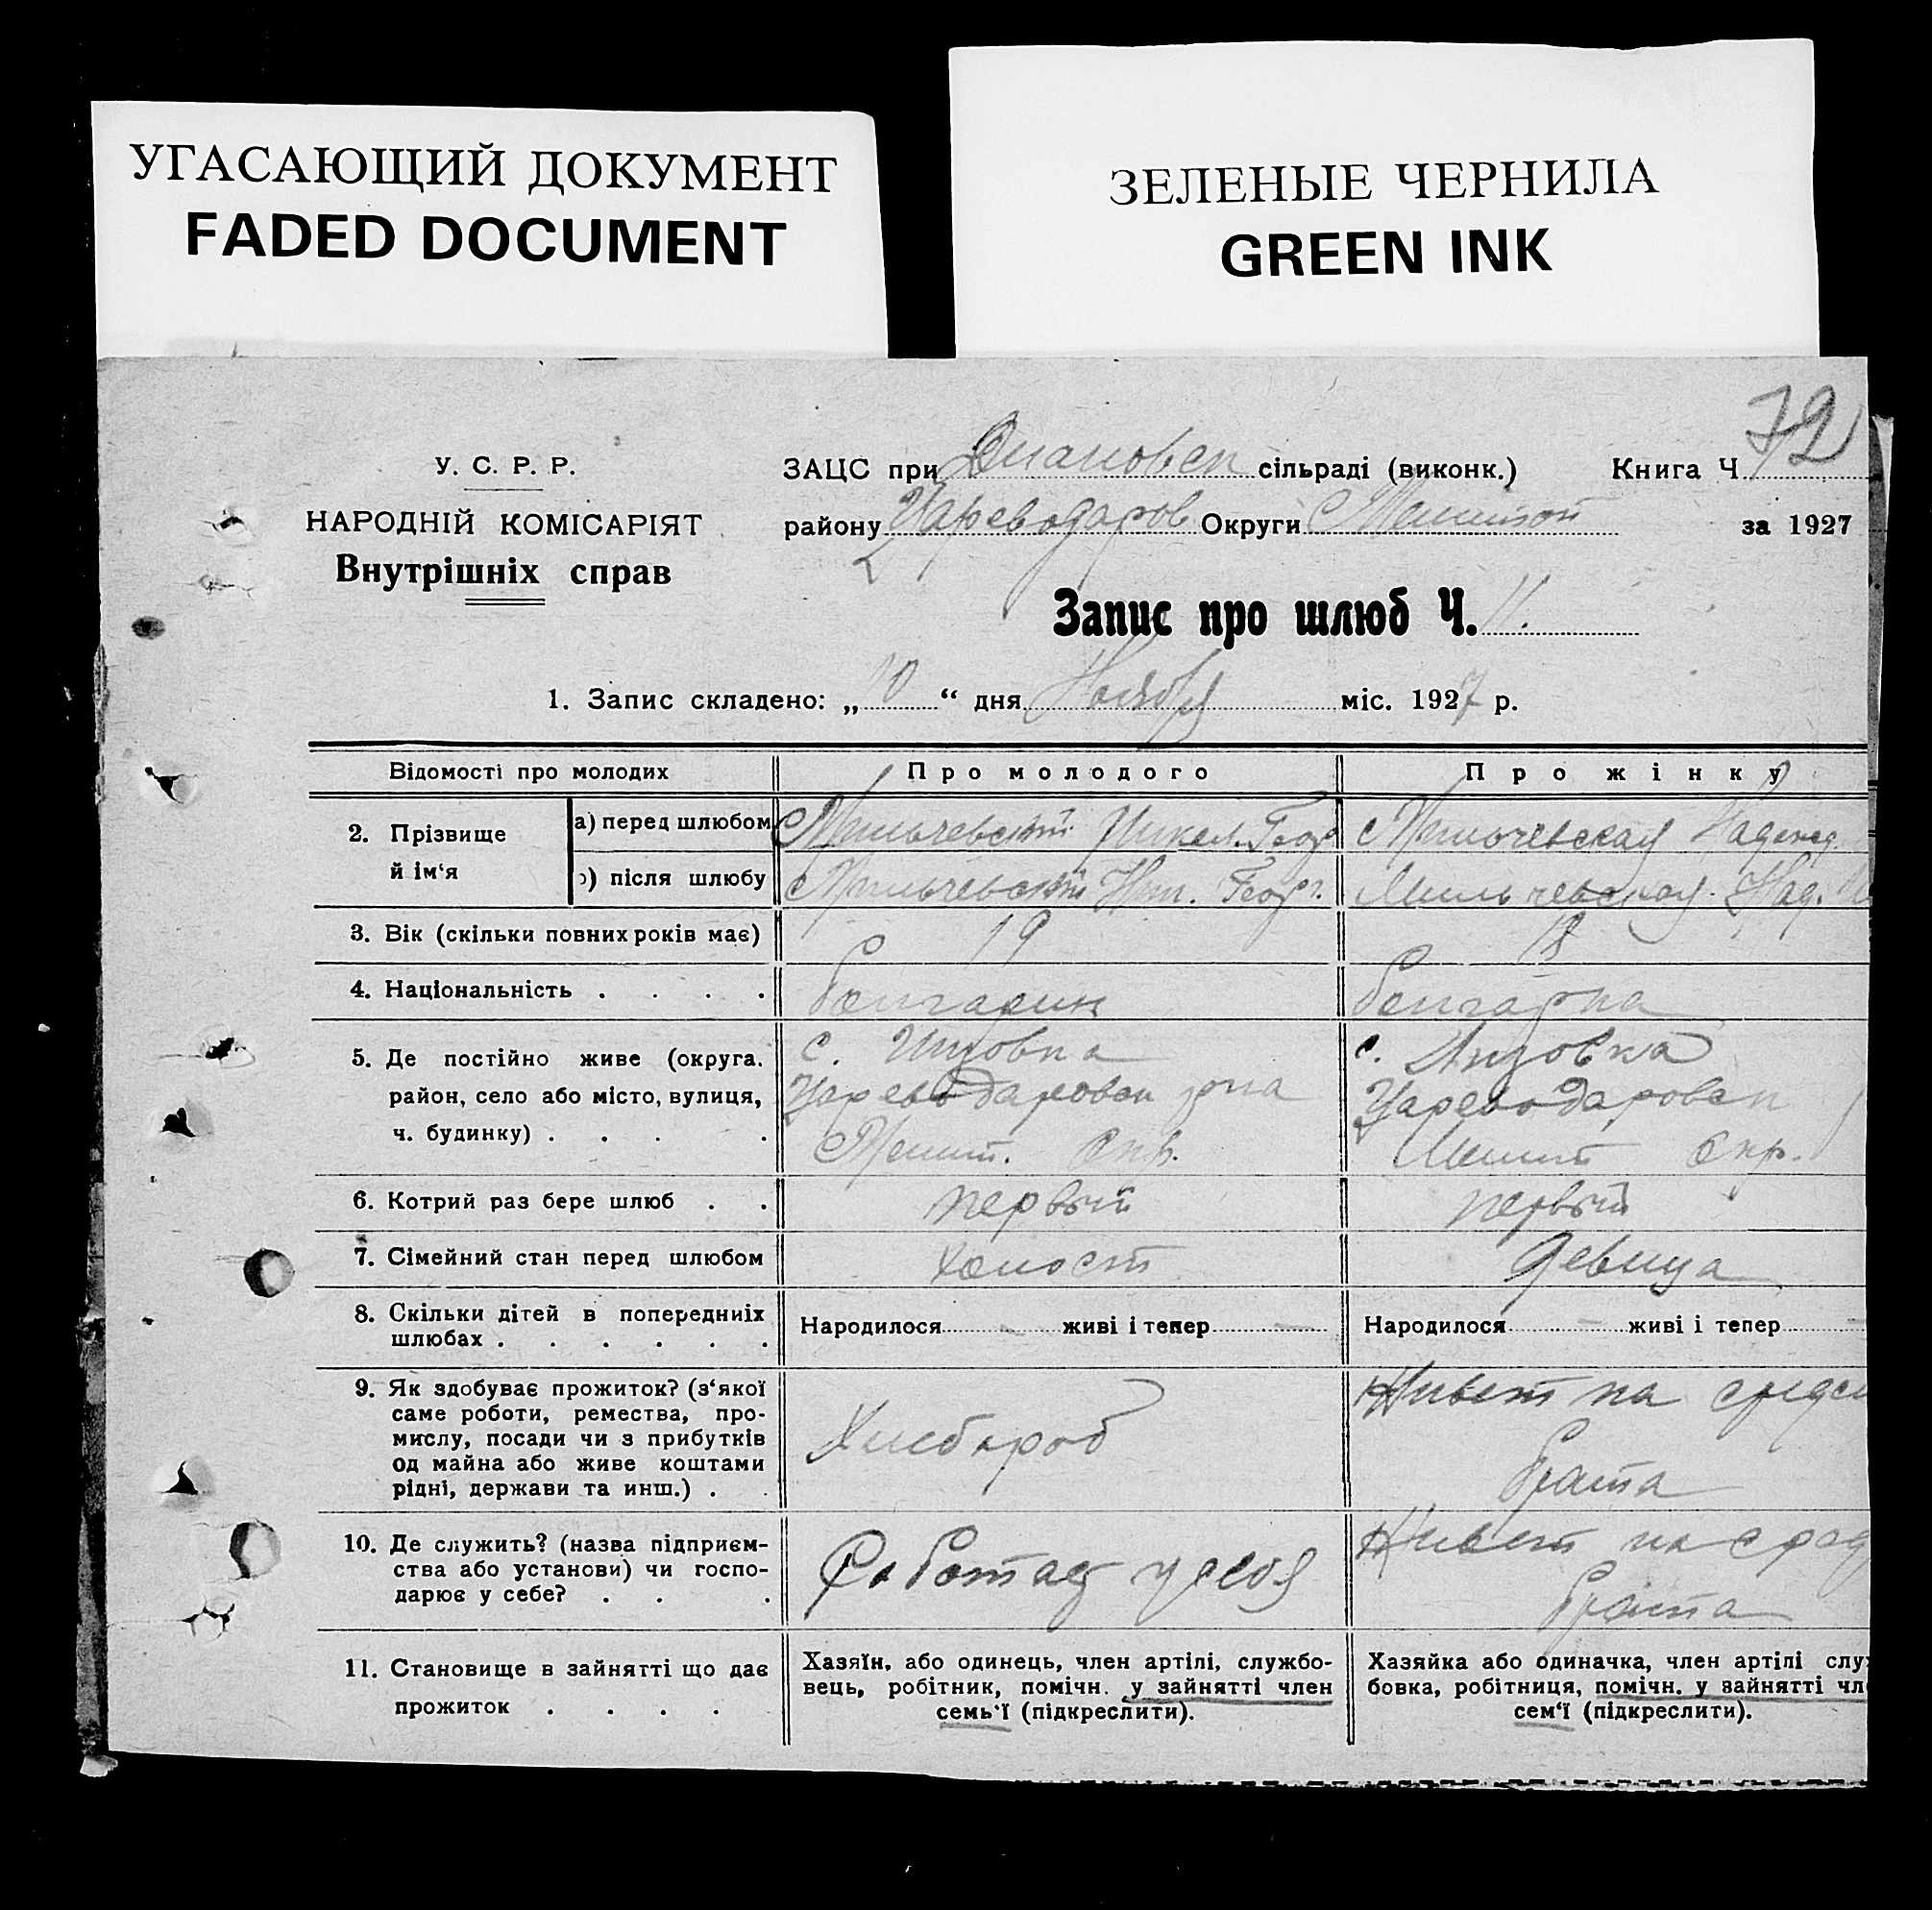 УГАСАЮЩИЙ ДОКУМЕНТ
FADED DOCUMENT
ЗЕЛЕНЫЕ ЧЕРНИЛА
GREEN INK
72
У. С. Р. Р.
НАРОДНІЙ КОМІСАРІЯТ
Внутрішніх справ
ЗАЦС при сільраді (виконк.) Книга Ч.
району Цареводаров Округи за 1927
Запис про шлюб Ч. 11.
1. Запис складено: „ “ дня Ноября міс. 1927 р.
Відомості про молодих Про молодого Про жінку
2. Прізвище й ім‘я
а) перед шлюбом Мильчевский Никол. Георг Мильчевская Надежд.
б) після шлюбу Мильчевский Ник. Георг. Мильчевская Над.
3. Вік (скільки повних років має) 19 18
4. Національність . . . . болгарин болгарка
5. Де постійно живе (округа, район, село або місто, вулиця, ч. будинку) . . . .
с.
Цареводаровск рна
Мелит. Окр.
с.
Цареводаровск
Мелит Окр.
6. Котрий раз бере шлюб . . первый первый
7. Сімейний стан перед шлюбом холост девица
8. Скільки дітей в попередниіх
шлюбах . . . . . .
Народилося живі і тепер Народилося живі і тепер
9. Як здобуває прожиток? (з‘якої
саме роботи, ремества, про-
мислу, посади чи з прибутків
од майна або живе коштами
рідні, держави та инш.) .
Хлебороб
Живет на средс
брата
10. Де служить? (назва підприєм-
ства або установи) чи госпо-
дарює у себе? . . .
Работает у себя
Живет на сред
брата
11. Становище в зайнятті що дає
прожиток . . . .
Хазяїн, або одинець, член артілі, службо-
вець, робітник, помічн. у зайнятті член
семь‘ї (підкреслити).
Хазяйка або одиначка, член артілі слу
бовка, робітниця, помічн. у зайнятті чл
сем‘ї (підкреслити).